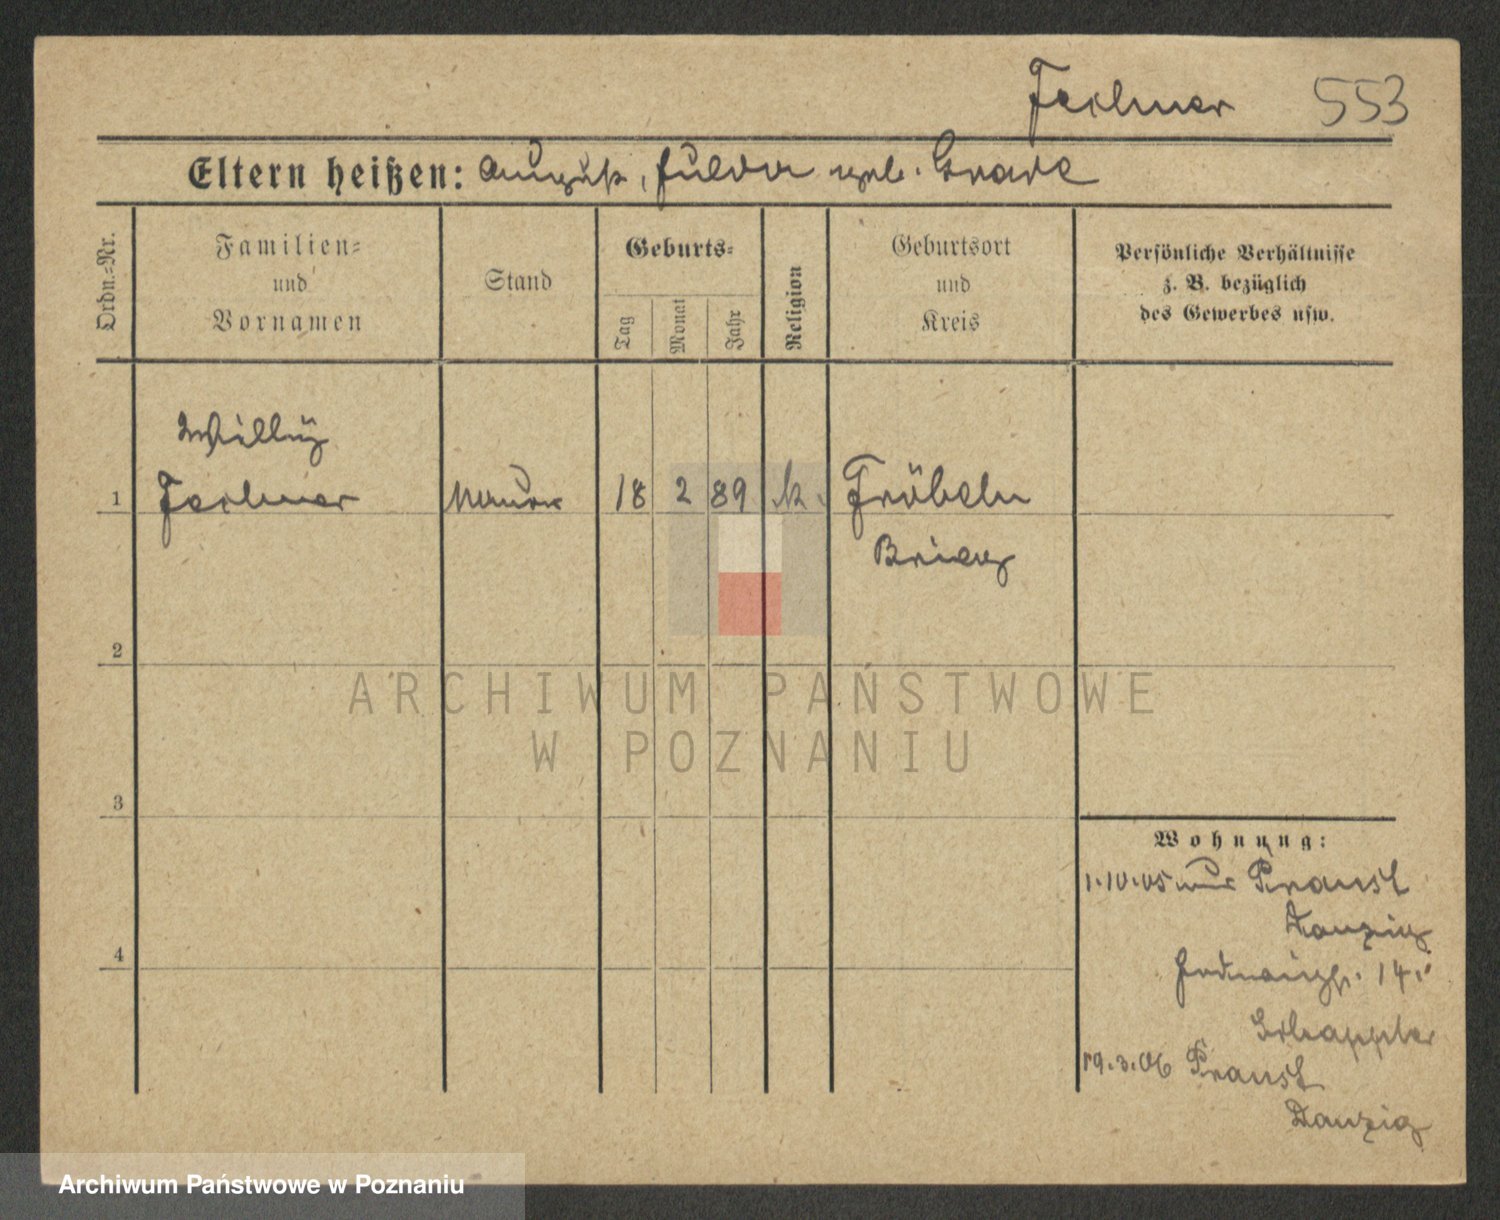 Feilner 553
Eltern heißen: August, Hulda geb. Grave
Ordn.-Nr.
Familien-
und
Vornamen
Stand
Geburts-
Tag
Monat
Jahr
Religion
Geburtsort
und
Kreis
Persönliche Verhältnisse
z. B. bezüglich
des Gewerbes usw.
Willy
1 Feilner Maurer 18 2 89 k. Fröbeln
Brieg
2
ARCHIWUM PAŃSTWOWE
W POZNANIU
3
Wohnung:
1.10.05 aus Praust
Danzig
14.
4
19.3.06 Praust
Danzig
Archiwum Państwowe w Poznaniu